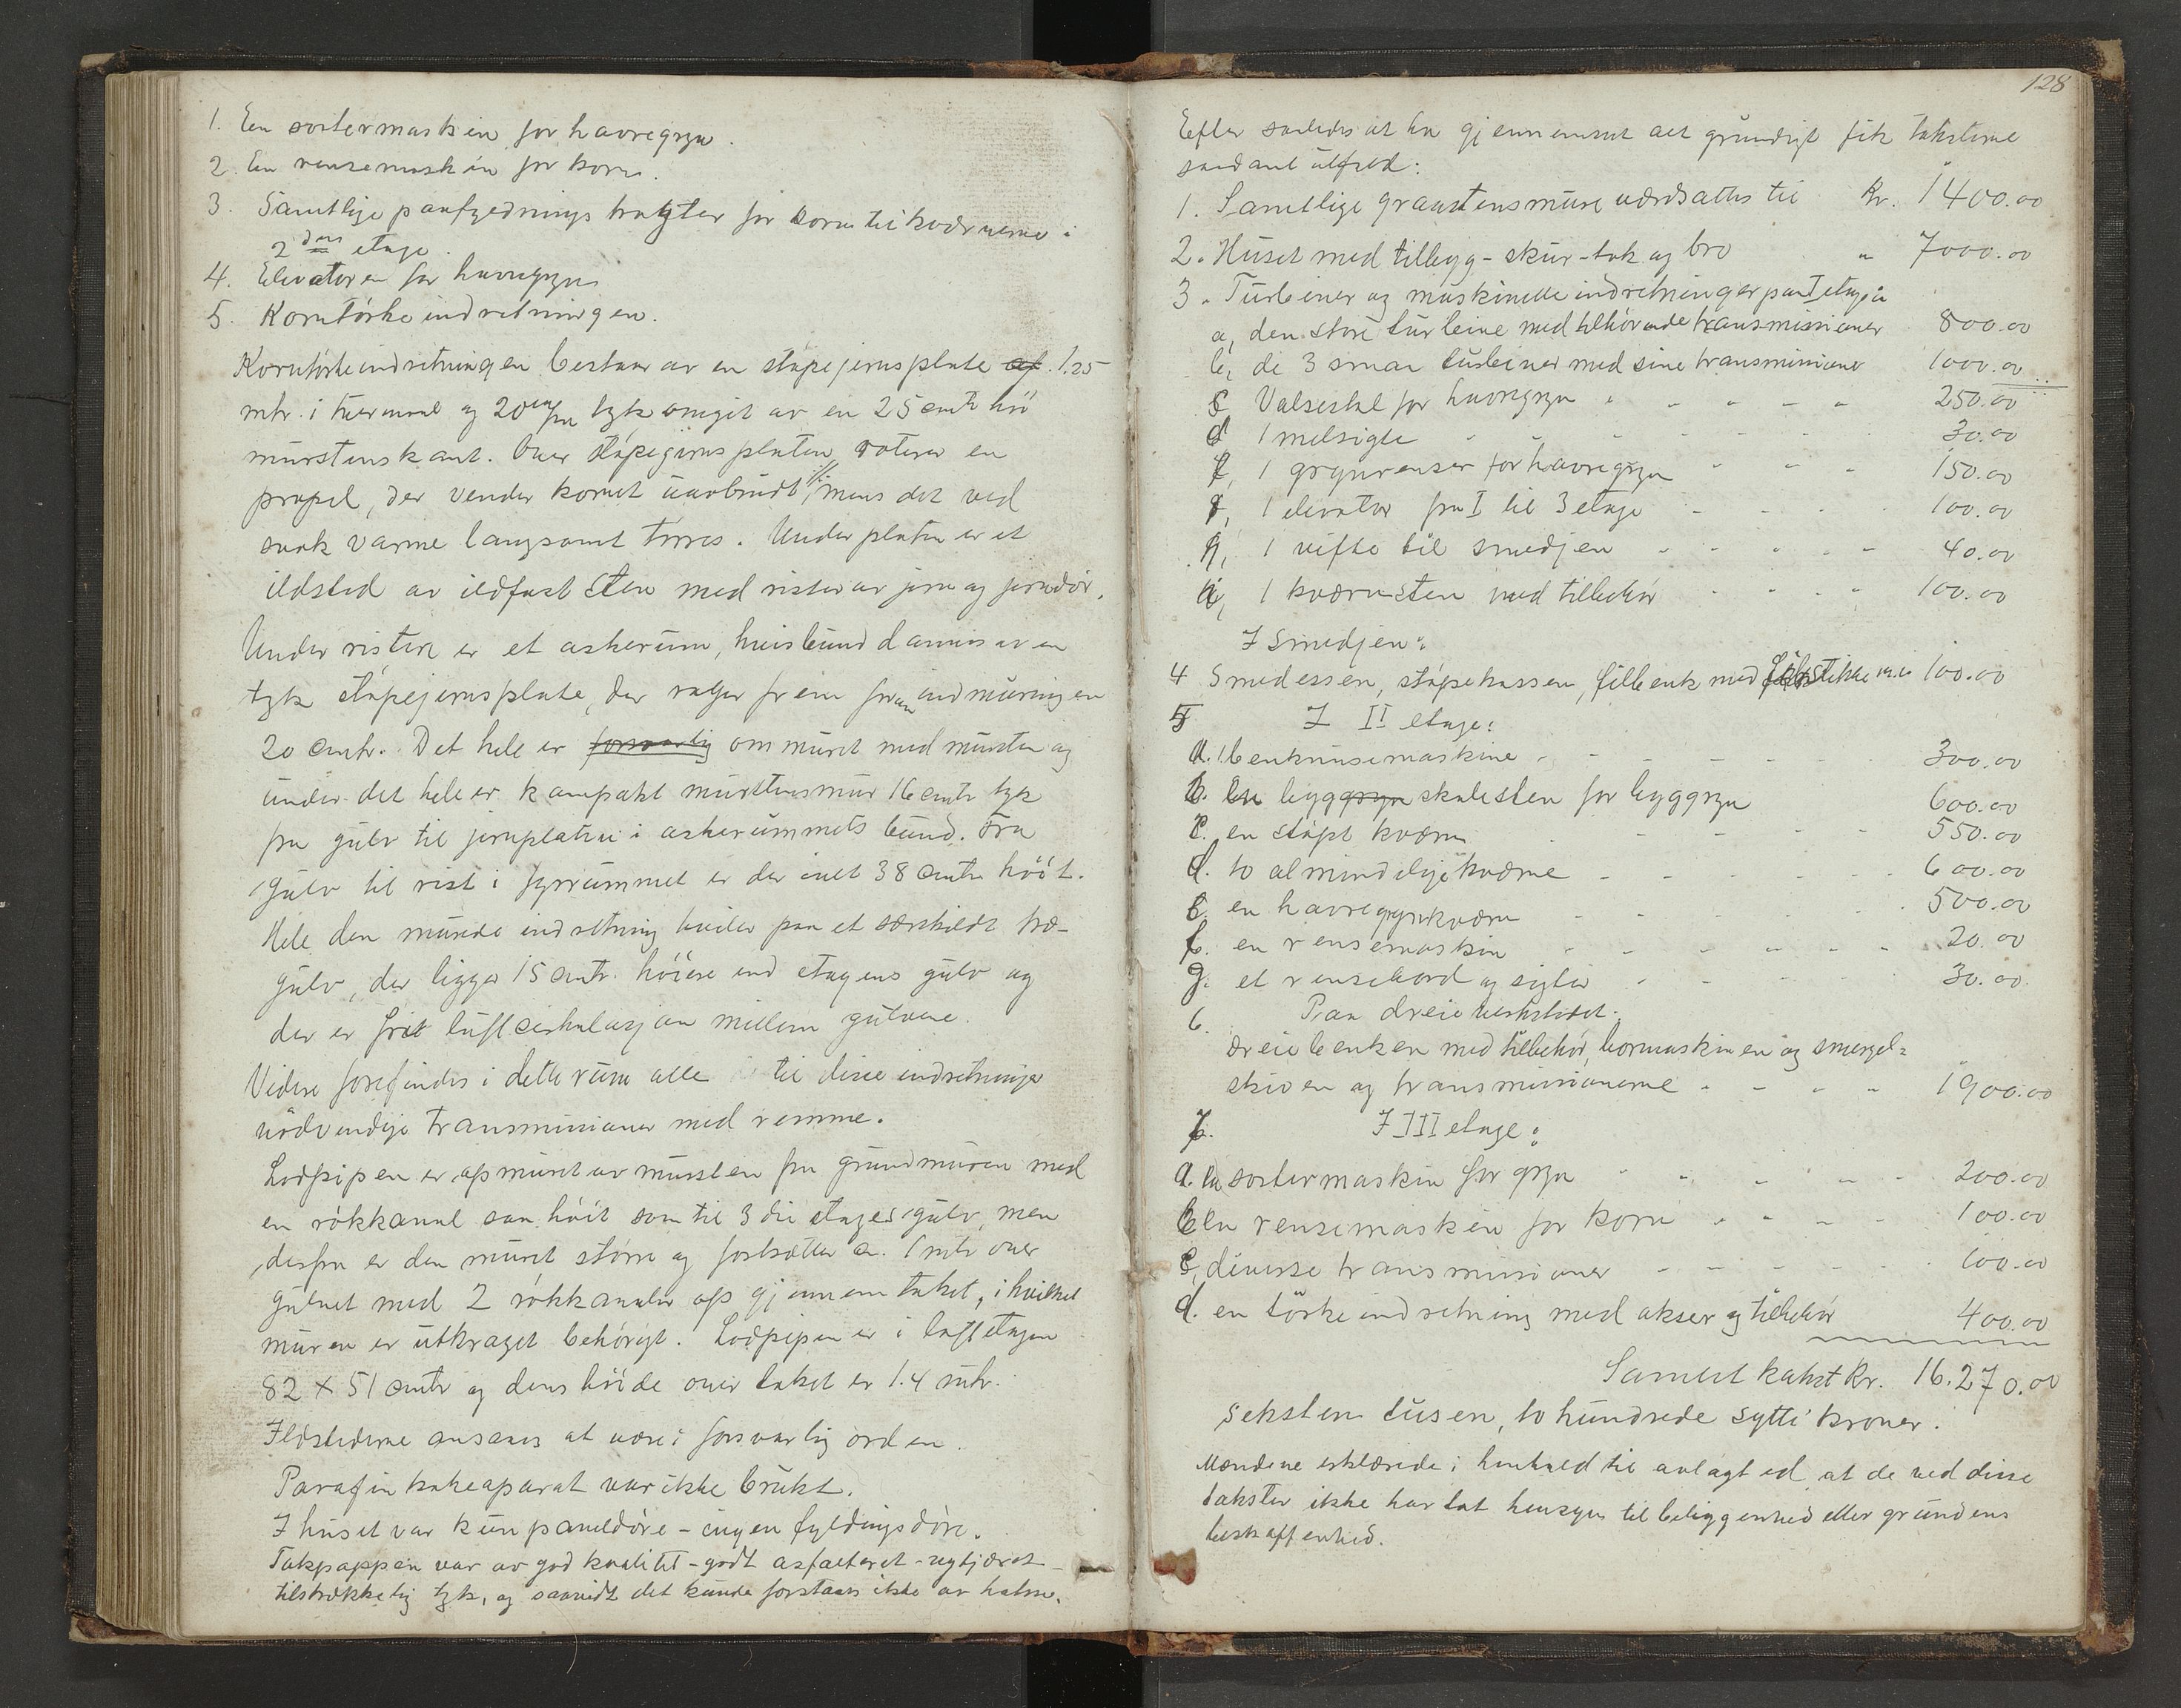 1. En sortermaskin for havregryn.
2. En rensemaskin for korn.
3. Samtlige paafyednings tragter for korn til kværnerne i
2den etage.
4. Elevatoren for havregryn
5. Korntørkeindretningen.
Korntørkeindretningen bestaar av en støpejernsplate af 1.25
mtr. i tvermaal og 20 m/m tyk omgit av en 25 cmtr høi
murstenskant. Over støpejernsplaten roterer en
propel, der vender kornet uavbrudt, mens det ved
svak varme langsomt tørres. Under platen er et
ildsted av ildfast sten med rister av jern og jerndør.
Under ristene er et askerum, hvis bund dannes av en
tyk støpejernsplate, der rager frem foran indmuringen
20 cmtr. Det hele er forsvarlig ommuret med mursten og
under det hele er kompakt murstensmur 16 cmtr tyk
fra gulv til jernplaten i askerummets bund. Fra
gulv til rist i fyrrummet er der ialt 38 cmtr høit.
Hele den murede indretning hviler paa et særskildt træ-
gulv, der ligger 15 cmtr. høiere end etagens gulv og
der er frit luftcirkulasjon mellem gulvene.
Videre forefindes i dette rum alle til disse indretninger
nødvendige transmissioner med remme.
Lodpipen er opmuret av mursten fra grundmuren med
en røkkanal saa høit som til 3die etages gulv, men
derfra er den muret større og fortsætter ca. 1 mtr over
gulvet med 2 røkkanaler op gjennem taket, i hvilket
muren er utkraget behørigt. Lodpipen er i loftetagen
82 x 51 cmtr og dens høide over taket er 1.4 mtr.
Ildstederne ansees at være i forsvarlig orden.
Parafin kokeaparat var ikke brukt.
I huset var kun paneldøre - ingen fyldingsdøre.
Takpappen var av god kvalitet - godt asfalteret - nytjæret
tilstrækkelig tyk, og saavidt det kunde forstaaes ikke av halm.
128
Efter saaledes at ha gjennemset alt grundigt fik taksterne
saadant utfald:
1. Samtlige graastensmure værdsattes til Kr. 1400.00
2. Huset med tilbygg - skur - tak og bro " 7000.00
3. Turbiner og maskinelle indretninger paa I etage
a, den store turbine med tilhørende transmissioner 800.00
b, de 3 smaa turbiner med sine transmissioner 1000.00
c Valsestol for havregryn 250.00
d 1 melsigte 30.00
e, 1 grynrenser for havregryn 150.00
f, 1 elevator fra I til 3 etage 100.00
h, 1 vifte til smedjen 40.00
i, 1 kværnsten med tilbehør 100.00
I smedjen:
4 Smedessen, støpekassen, filbenk med skrustikke m.m 100.00
5 I II etage:
a. 1 benknusemaskine 300.00
b. En bygggryn skalesten for byggryn 600.00
c. en støpt kværn 550.00
d. to almindelige kværne 600.00
e. en havregrynkværn 500.00
f. en rensemaskin 20.00
g. et rensebord og sigter 30.00
6. Paa dreieverkstedet.
dreiebenken med tilbehør, bormaskinen og smergel=
skiven og transmissionerne 1900.00
7. I III etage:
a. en sortermaskin for gryn 200.00
b En rensemaskin for korn 100.00
c, diverse transmissioner 100.00
d. en tørkeindretning med akser og tilbehør 400.00
Samlet takst Kr. 16.270.00
Seksten tusen, to hundrede sytti kroner.
Mændene erklærede i henhold til avlagt ed, at de ved disse
takster ikke har tat hensyn til beliggenhed eller grundens
beskaffenhed.